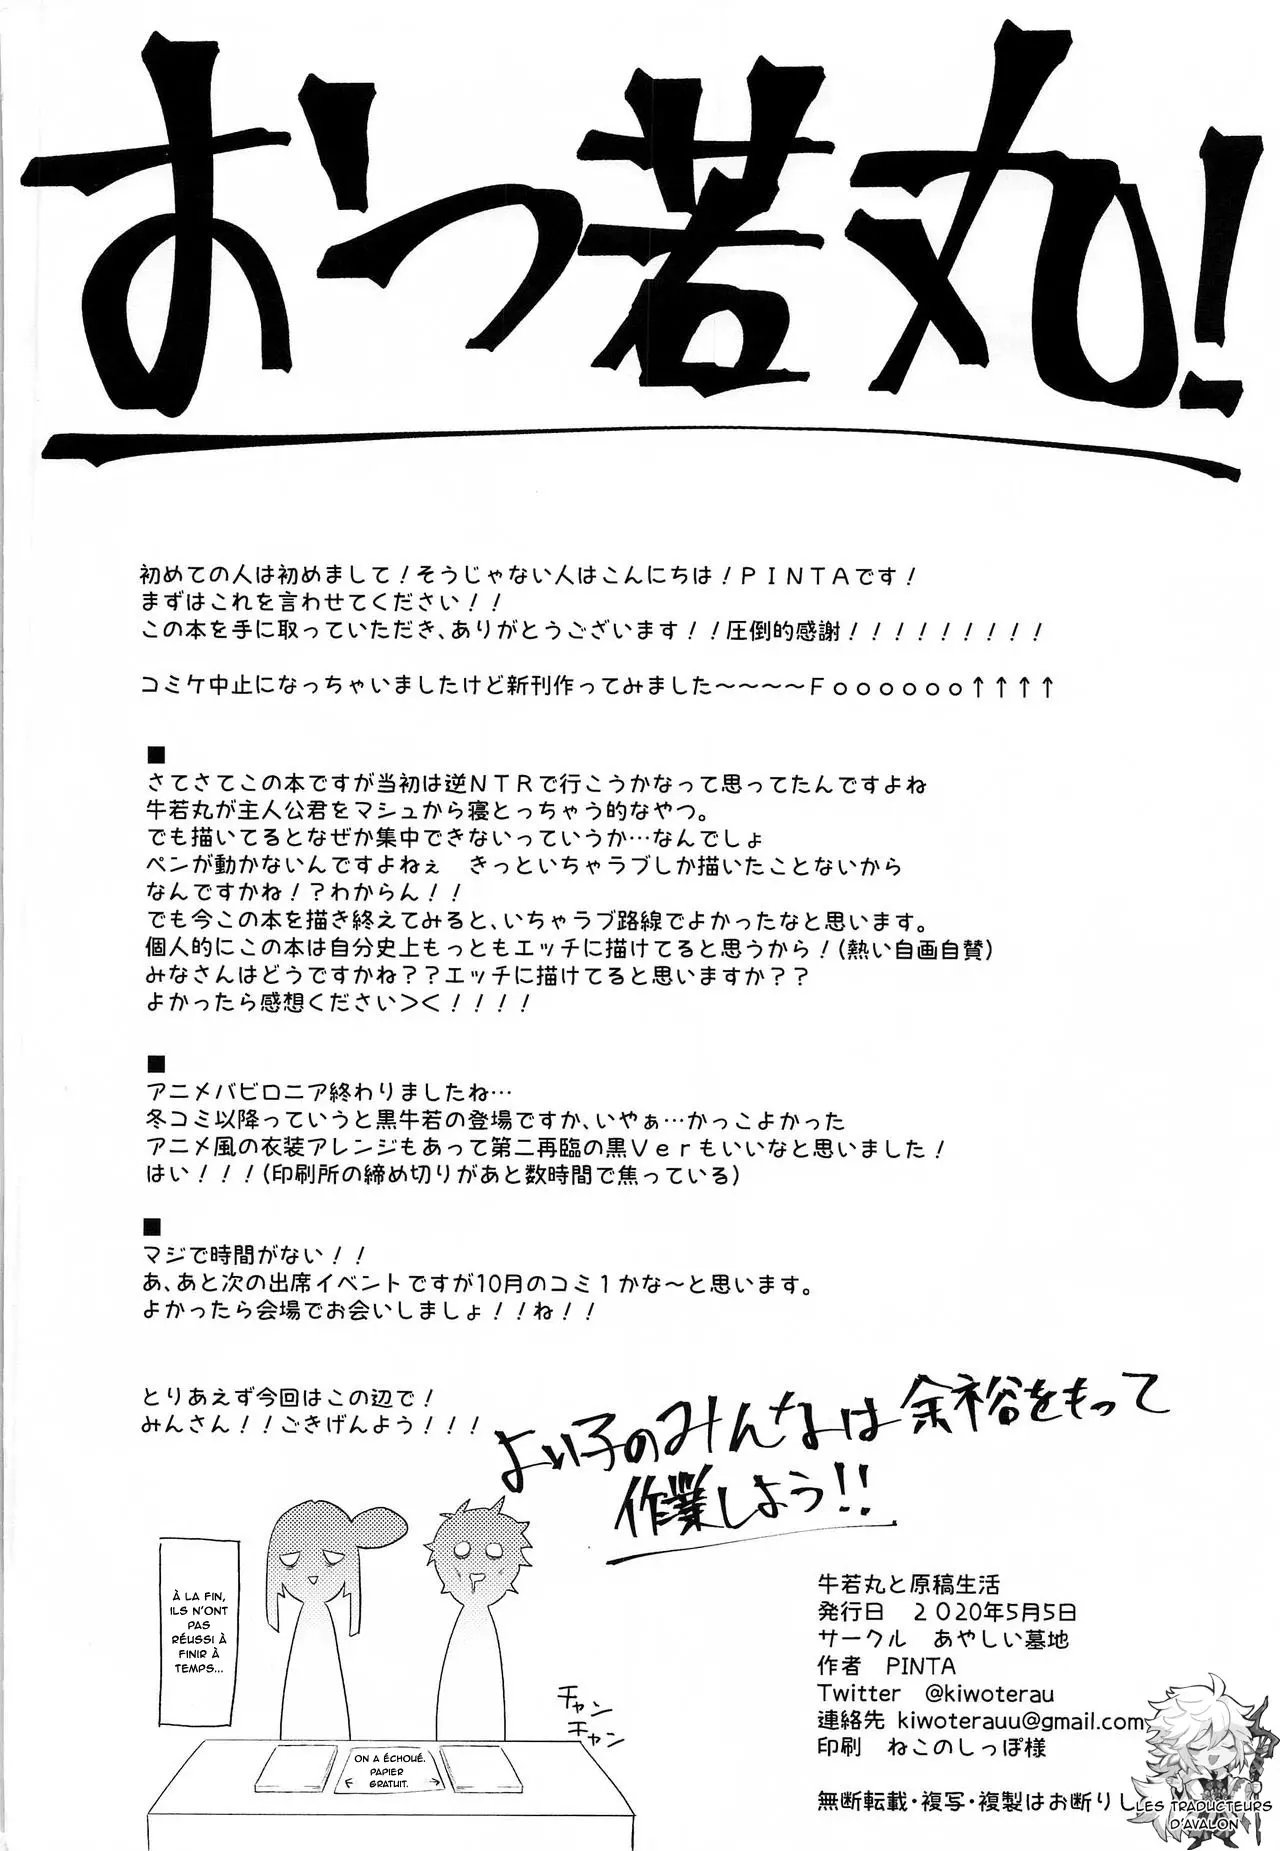 おつ若丸!
初めての人は初めまして!そうじゃない人はこんにちは!PINTAです!
まずはこれを言わせてください!!
この本を手に取っていただき、ありがとうございます!!圧倒的感謝!!!!!!!!!
コミケ中止になっちゃいましたけど新刊作ってみました～～～～Foooooo↑↑↑↑
■
さてさてこの本ですが当初は逆NTRで行こうかなって思ってたんですよね
牛若丸が主人公君をマシュから寝とっちゃう的なやつ。
でも描いてるとなぜか集中できないっていうか…なんでしょ
ペンが動かないんですよねぇ きっといちゃラブしか描いたことないから
なんですかね!?わからん!!
でも今この本を描き終えてみると、いちゃラブ路線でよかったなと思います。
個人的にこの本は自分史上もっともエッチに描けてると思うから!(熱い自画自賛)
みなさんはどうですかね??エッチに描けてると思いますか??
よかったら感想ください＞＜!!!!
■
アニメバビロニア終わりましたね…
冬コミ以降っていうと黒牛若の登場ですか、いやぁ…かっこよかった
アニメ風の衣装アレンジもあって第二再臨の黒Verもいいなと思いました!
はい!!!(印刷所の締め切りがあと数時間で焦っている)
■
マジで時間がない!!
あ、あと次の出席イベントですが10月のコミ1かな～と思います。
よかったら会場でお会いしましょ!!ね!!
とりあえず今回はこの辺で!
みんさん!!ごきげんよう!!!
よい子のみんなは余裕をもって
作業しよう!!
À LA FIN,
ILS N'ONT
PAS
RÉUSSI À
FINIR À
TEMPS...
チャン
チャン
ON A ÉCHOUÉ.
PAPIER
GRATUIT.
牛若丸と原稿生活
発行日 2020年5月5日
サークル あやしい墓地
作者 PINTA
Twitter @kiwoterau
連絡先 kiwoterauu@gmail.com
印刷 ねこのしっぽ様
無断転載・複写・複製はお断りし
LES TRADUCTEURS
D'AVALON